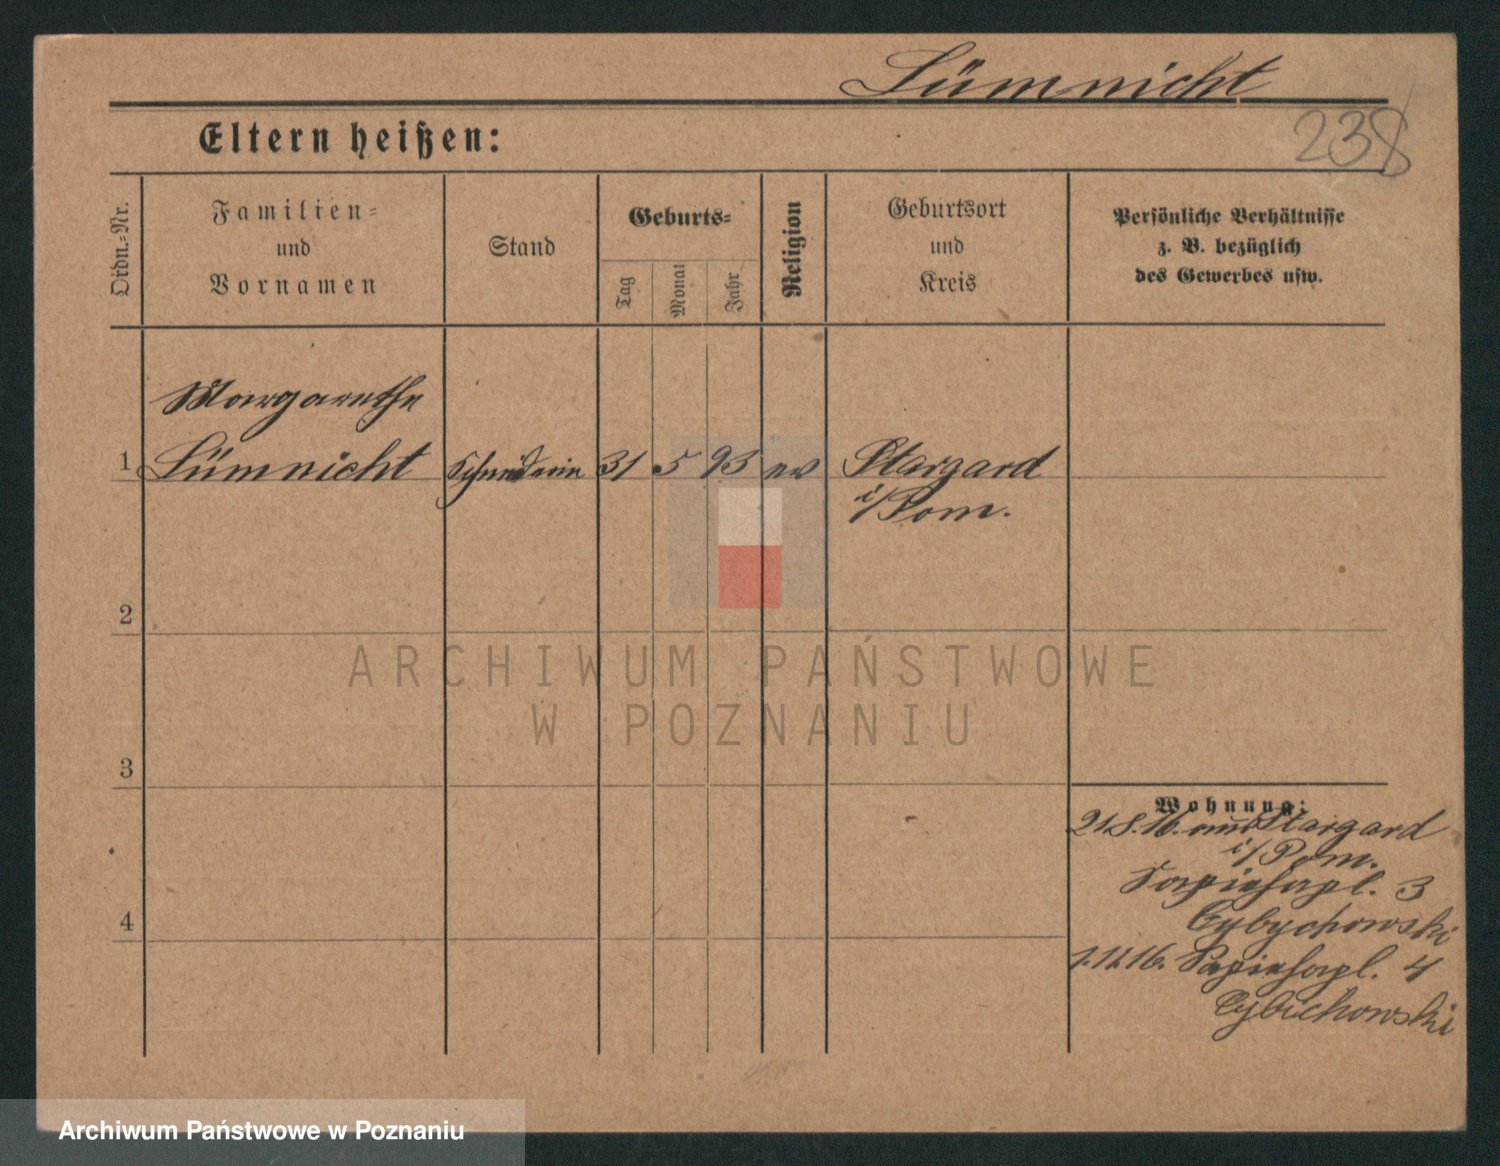 Lümnicht
238
Eltern heißen:
Ordn.-Nr.
Familien-
und
Vornamen
Stand
Geburts-
Tag
Monat
Jahr
Religion
Geburtsort
und
Kreis
Persönliche Verhältnisse
z. B. bezüglich
des Gewerbes usw.
Margarethe
1 Lümnicht Schneiderin 31 5 93 ev Stargard
i/Pom.
2
ARCHIWUM PAŃSTWOWE
W POZNANIU
3
Wohnung:
21.8.16. aus Stargard
i/Pom.
Sapiehapl. 3
Cybychowski
4
1.11.16. Sapiehapl. 4
Cybichowski
Archiwum Państwowe w Poznaniu